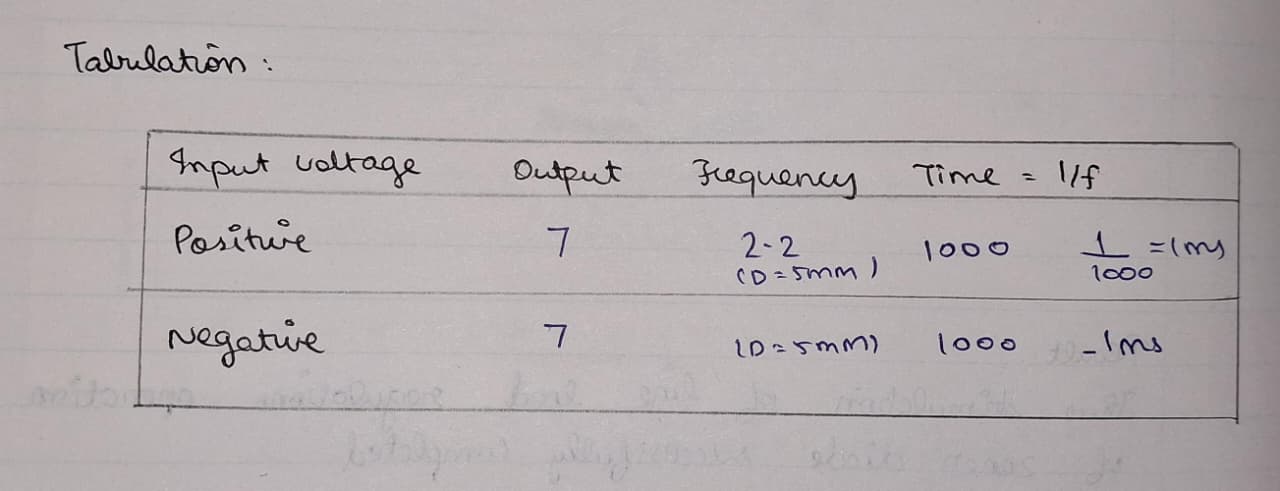 Tabulation :
Input voltage Output Frequency Time = 1/f
Positive 7 2.2 1000 1/1000 = 1ms
(D = 5mm)
Negative 7 (D = 5mm) 1000 -1ms